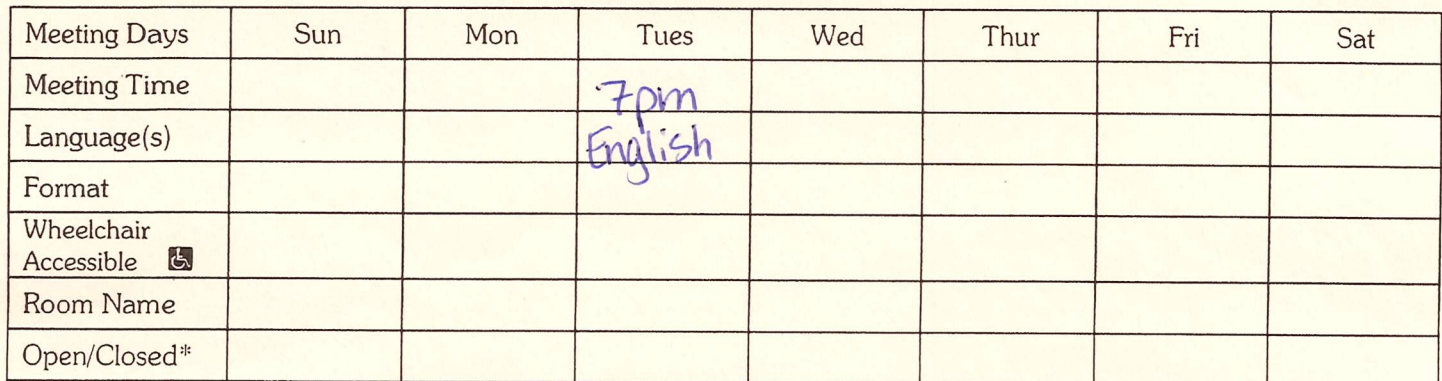 Meeting Days Sun Mon Tues Wed Thur Fri Sat
Meeting Time 7pm
Language(s) English
Format
Wheelchair
Accessible
Room Name
Open/Closed*